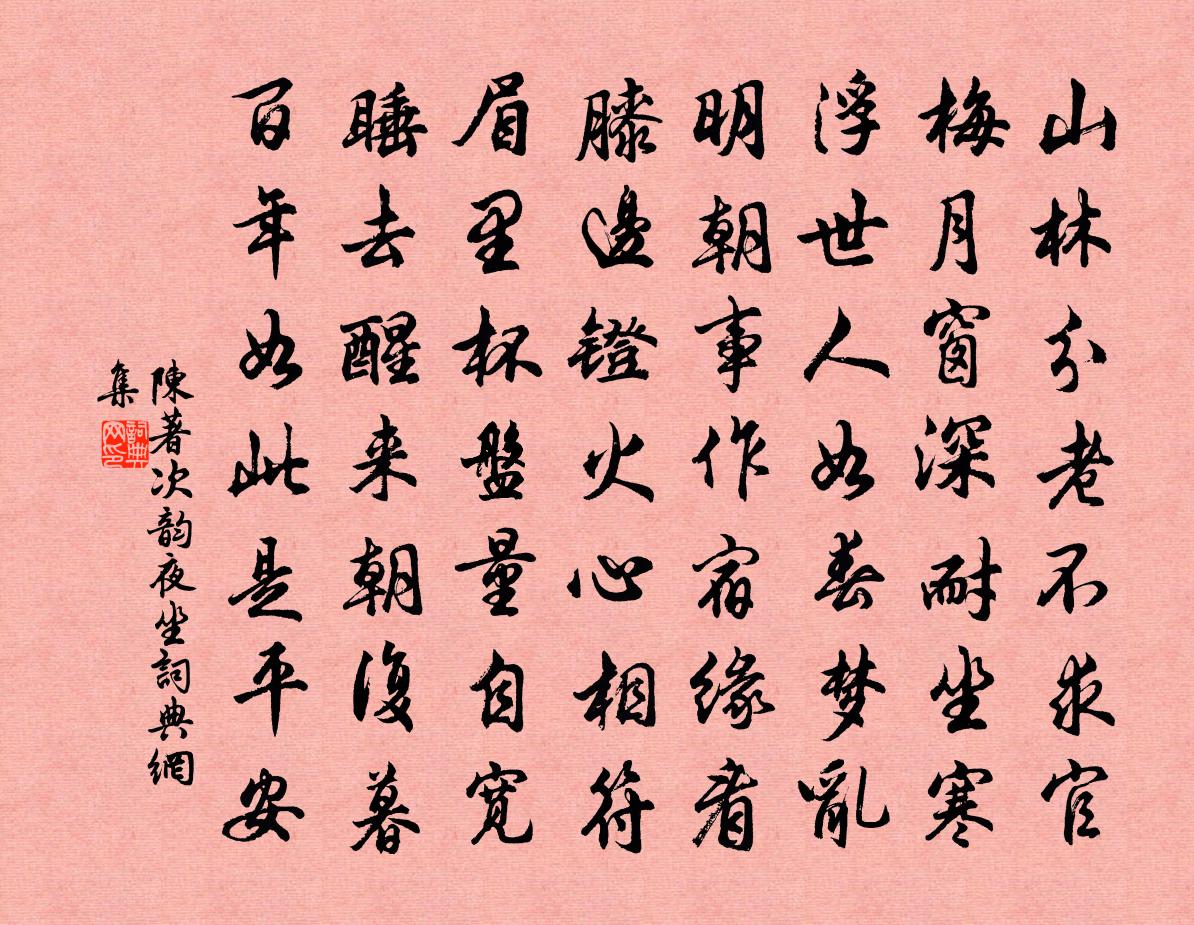 山林分老不求官
梅月窗深耐坐寒
浮世人如春梦亂
明朝事作宿緣看
膝邊鐙火心相符
眉里杯盤量自寬
睡去醒来朝復暮
百年如此是平安
陳著次韵夜坐詞典網
集
詞典
网印